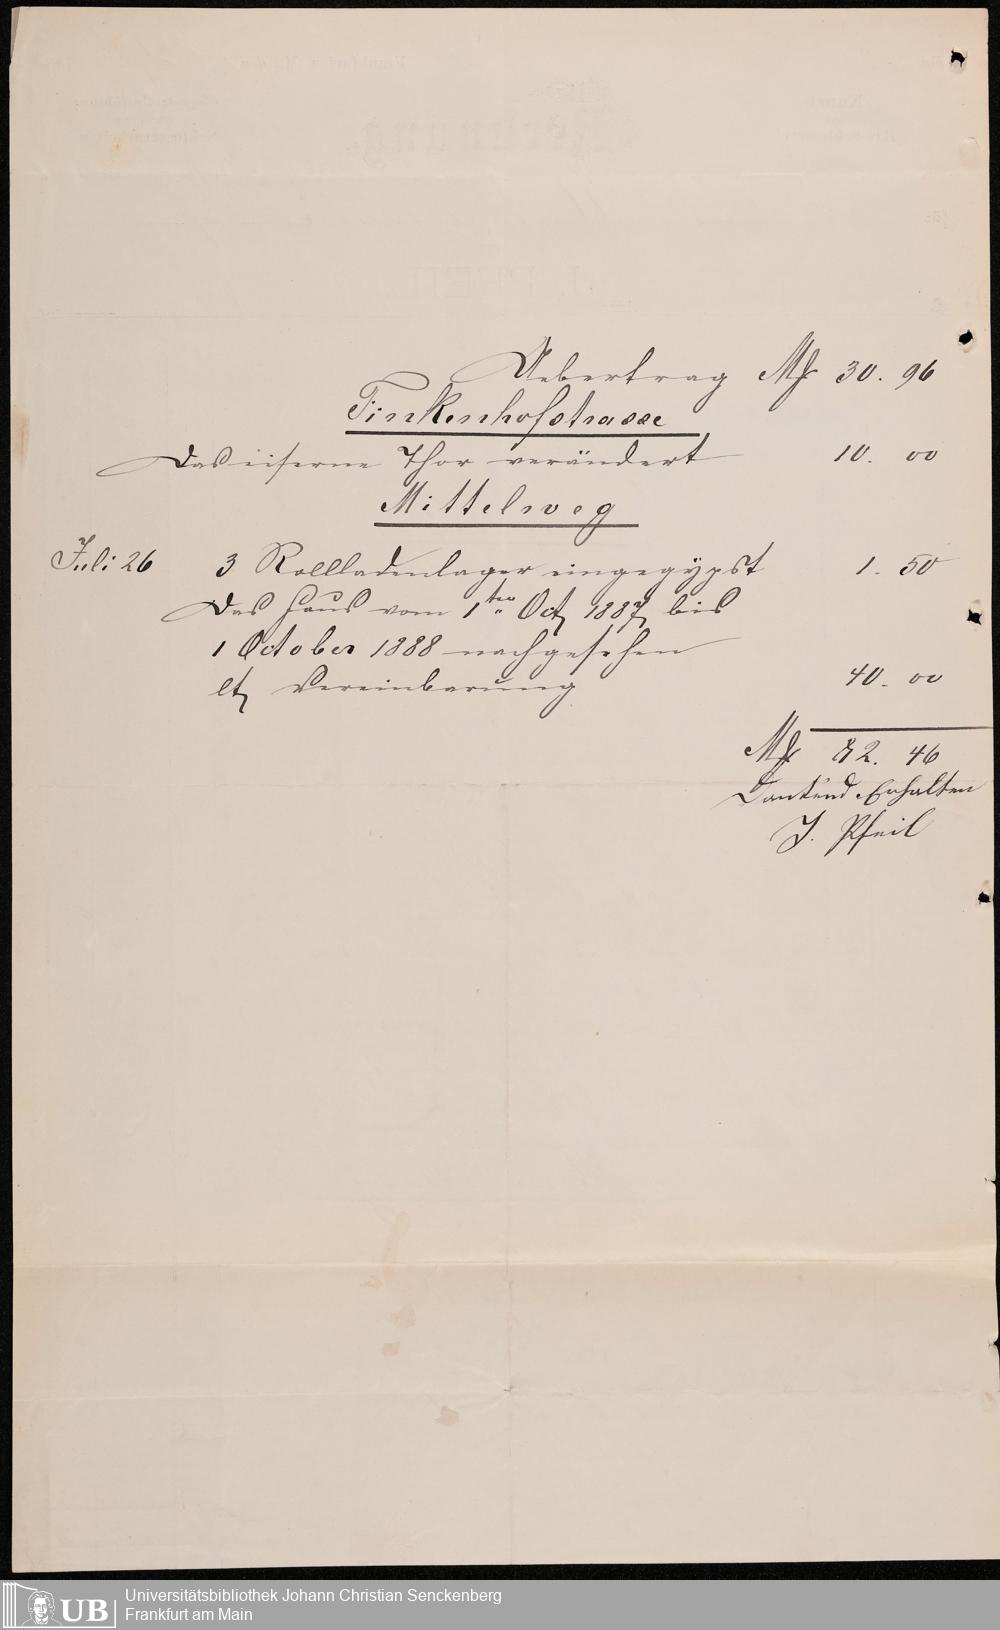 Uebertrag Mk 30. 96
Finkenhofstrasse
Das eiserne Thor verändert 10. 00
Mittelweg
Juli 26 3 Rollladenlager eingegypst 1. 50
Das Haus vom 1ten Oct 1887 bis
1 October 1888 nachgesehen
lt Vereinbarung 40. 00
Mk 82. 46
Dankend Erhalten
J. Pfeil
UB Universitätsbibliothek Johann Christian Senckenberg
Frankfurt am Main